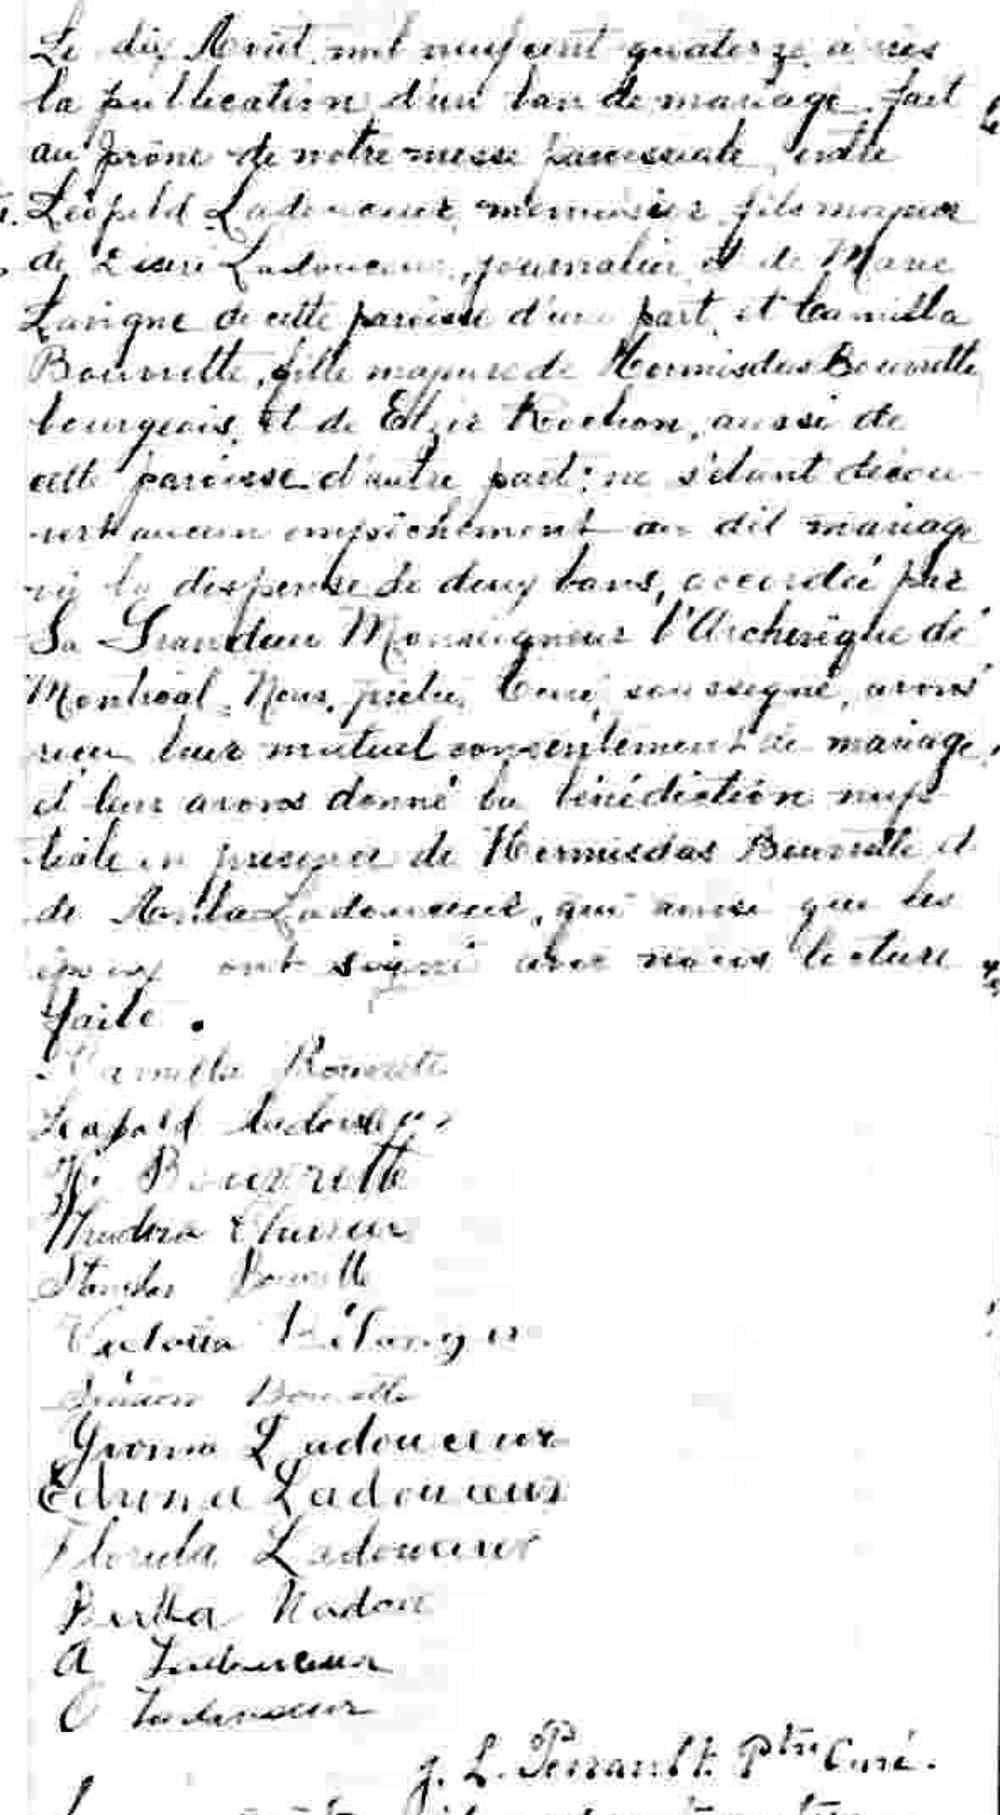 Le dix Août mil neuf cent quatorze, après
la publication d'un ban de mariage fait
au prône de notre messe paroissiale, entre
Léopold Ladouceur, menuisier, fils majeur
de Ladouceur, journalier et de Marie
Lavigne de cette paroisse d'une part, et Camilla
Bourrette, fille majeure de Hermisdas Bourrette
bourgeois, et de Rochon, aussi de
cette paroisse d'autre part: ne s'étant décou-
vert aucun empêchement au dit mariage
vu la dispense de deux bans, accordée par
Sa Grandeur Monseigneur l'Archevêque de
Montréal, Nous, prêtre, Curé, soussigné, avons
reçu leur mutuel consentement de mariage,
et leur avons donné la bénédiction nup-
tiale en présence de Hermisdas Bourrette et
de Ladouceur, qui ainsi que les
époux ont signé avec nous lecture
faite.
Camilla Bourrette
Leopold Ladouceur
H. Bourrette
Bourrette
Victoria Bélanger
Bourrette
Yvonne Ladouceur
Edwina Ladouceur
Florida Ladouceur
Bertha Nadon
A Ladouceur
O Ladouceur
J. L. Perrault Ptre Curé.